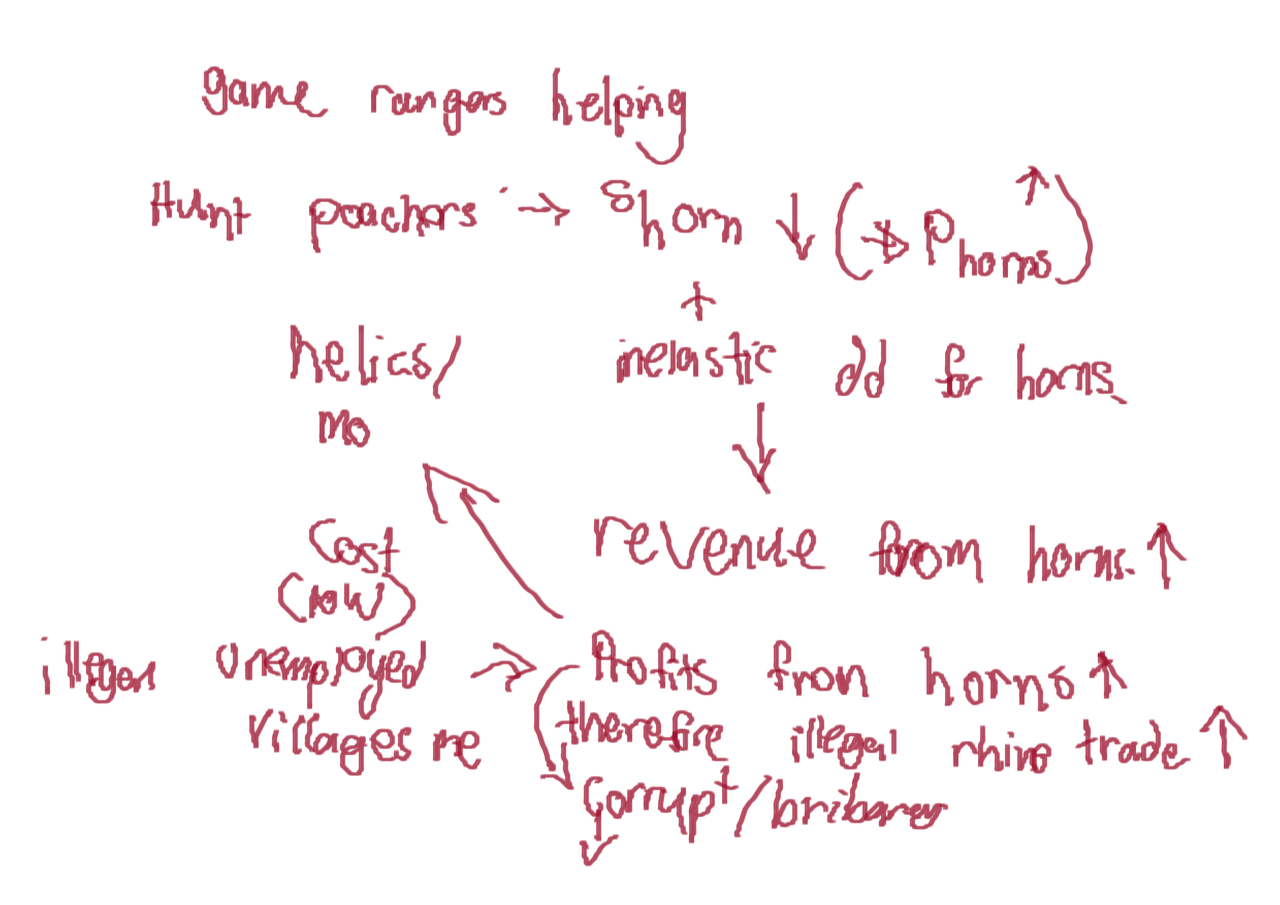 game rangers helping
Hunt poachers → S horn ↓ (→ P horns ↑)
+
helics/ inelastic dd for horns
mo
↓
Cost revenue from horns ↑
(low)
illegal unemployed → Profits from horns ↑
villages me therefore illegal rhino trade ↑
corrupt/bribarey